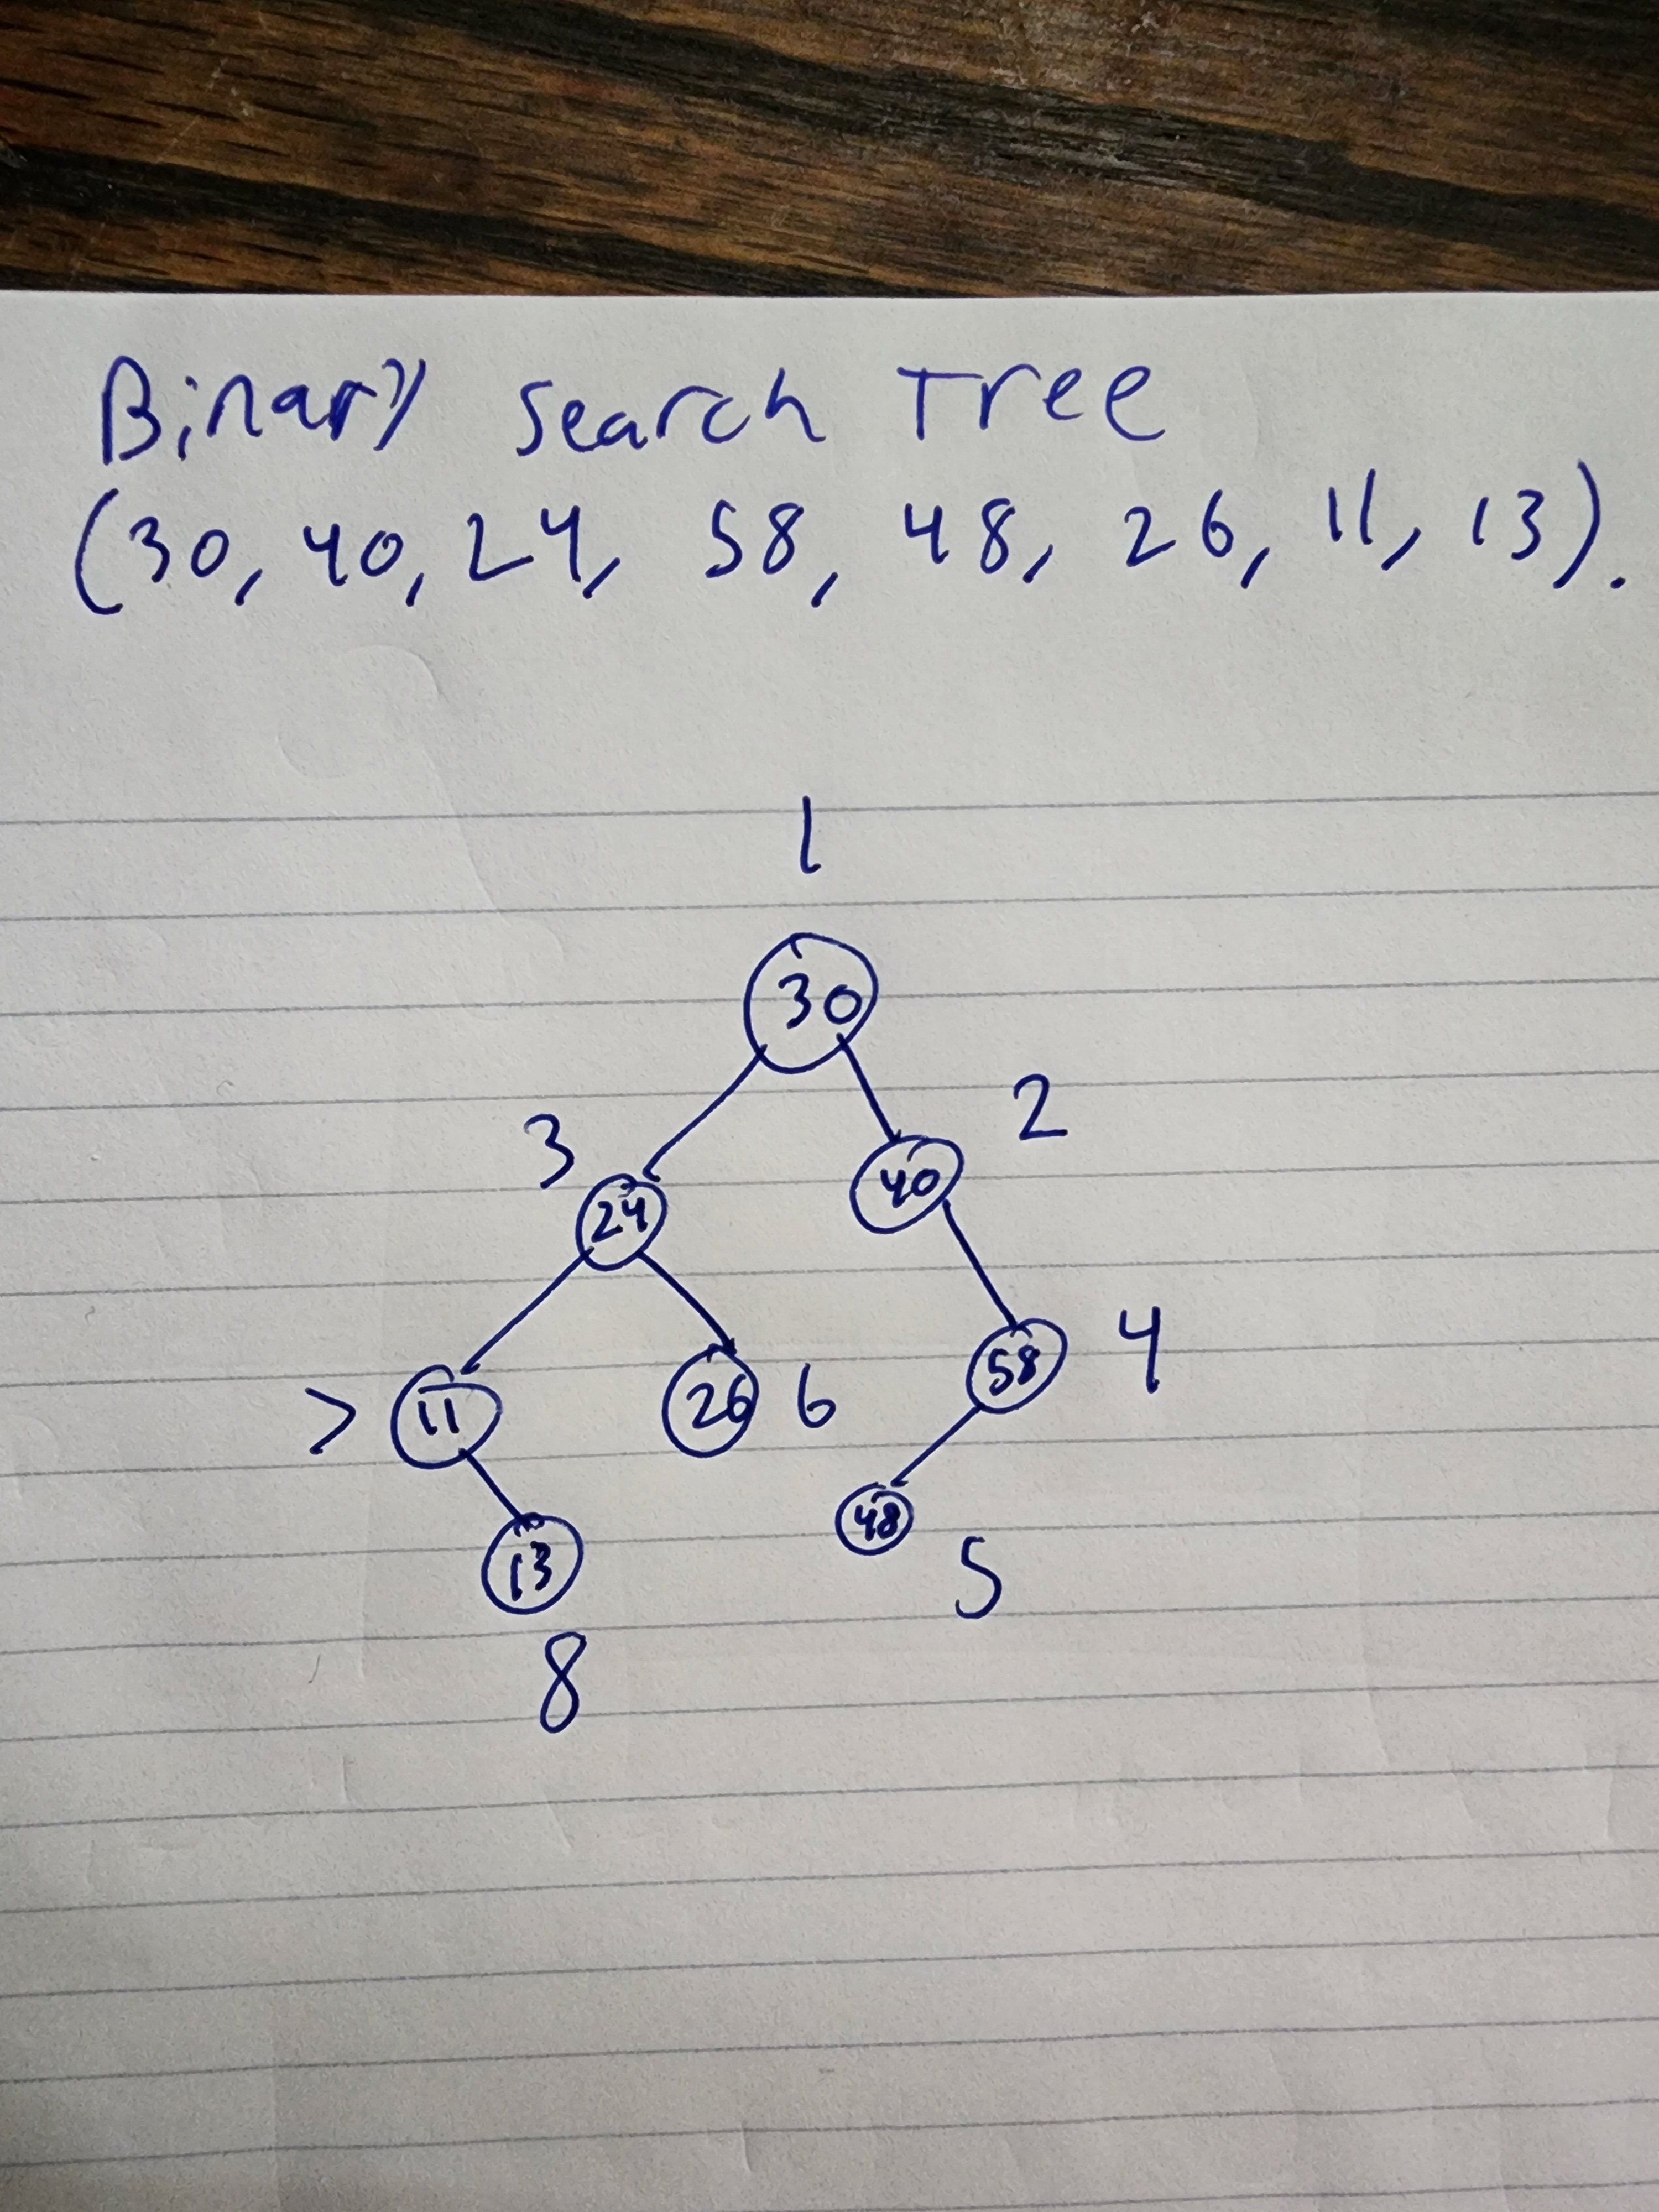 Binary Search Tree
(30, 40, 24, 58, 48, 26, 11, 13).
1
30
3 2
24 40
7 11 26 6 58 4
13 48 5
8